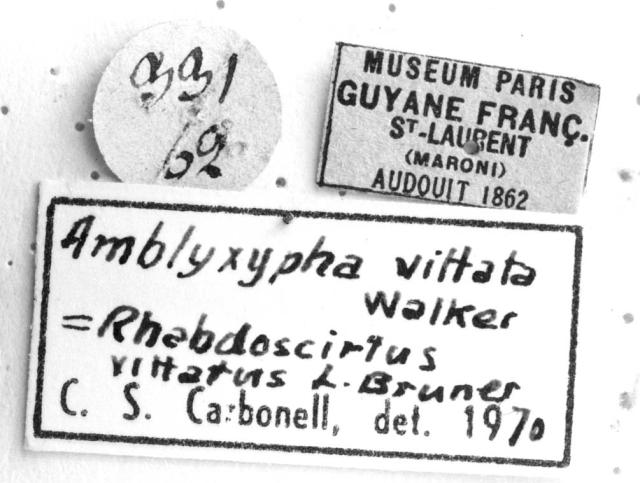 991
62
MUSEUM PARIS
GUYANE FRANÇ.
ST-LAURENT
(MARONI)
AUDOUIT 1862
Amblyxypha vittata
Walker
= Rhabdoscirtus
vittatus L. Bruner
C. S. Carbonell, det. 1970